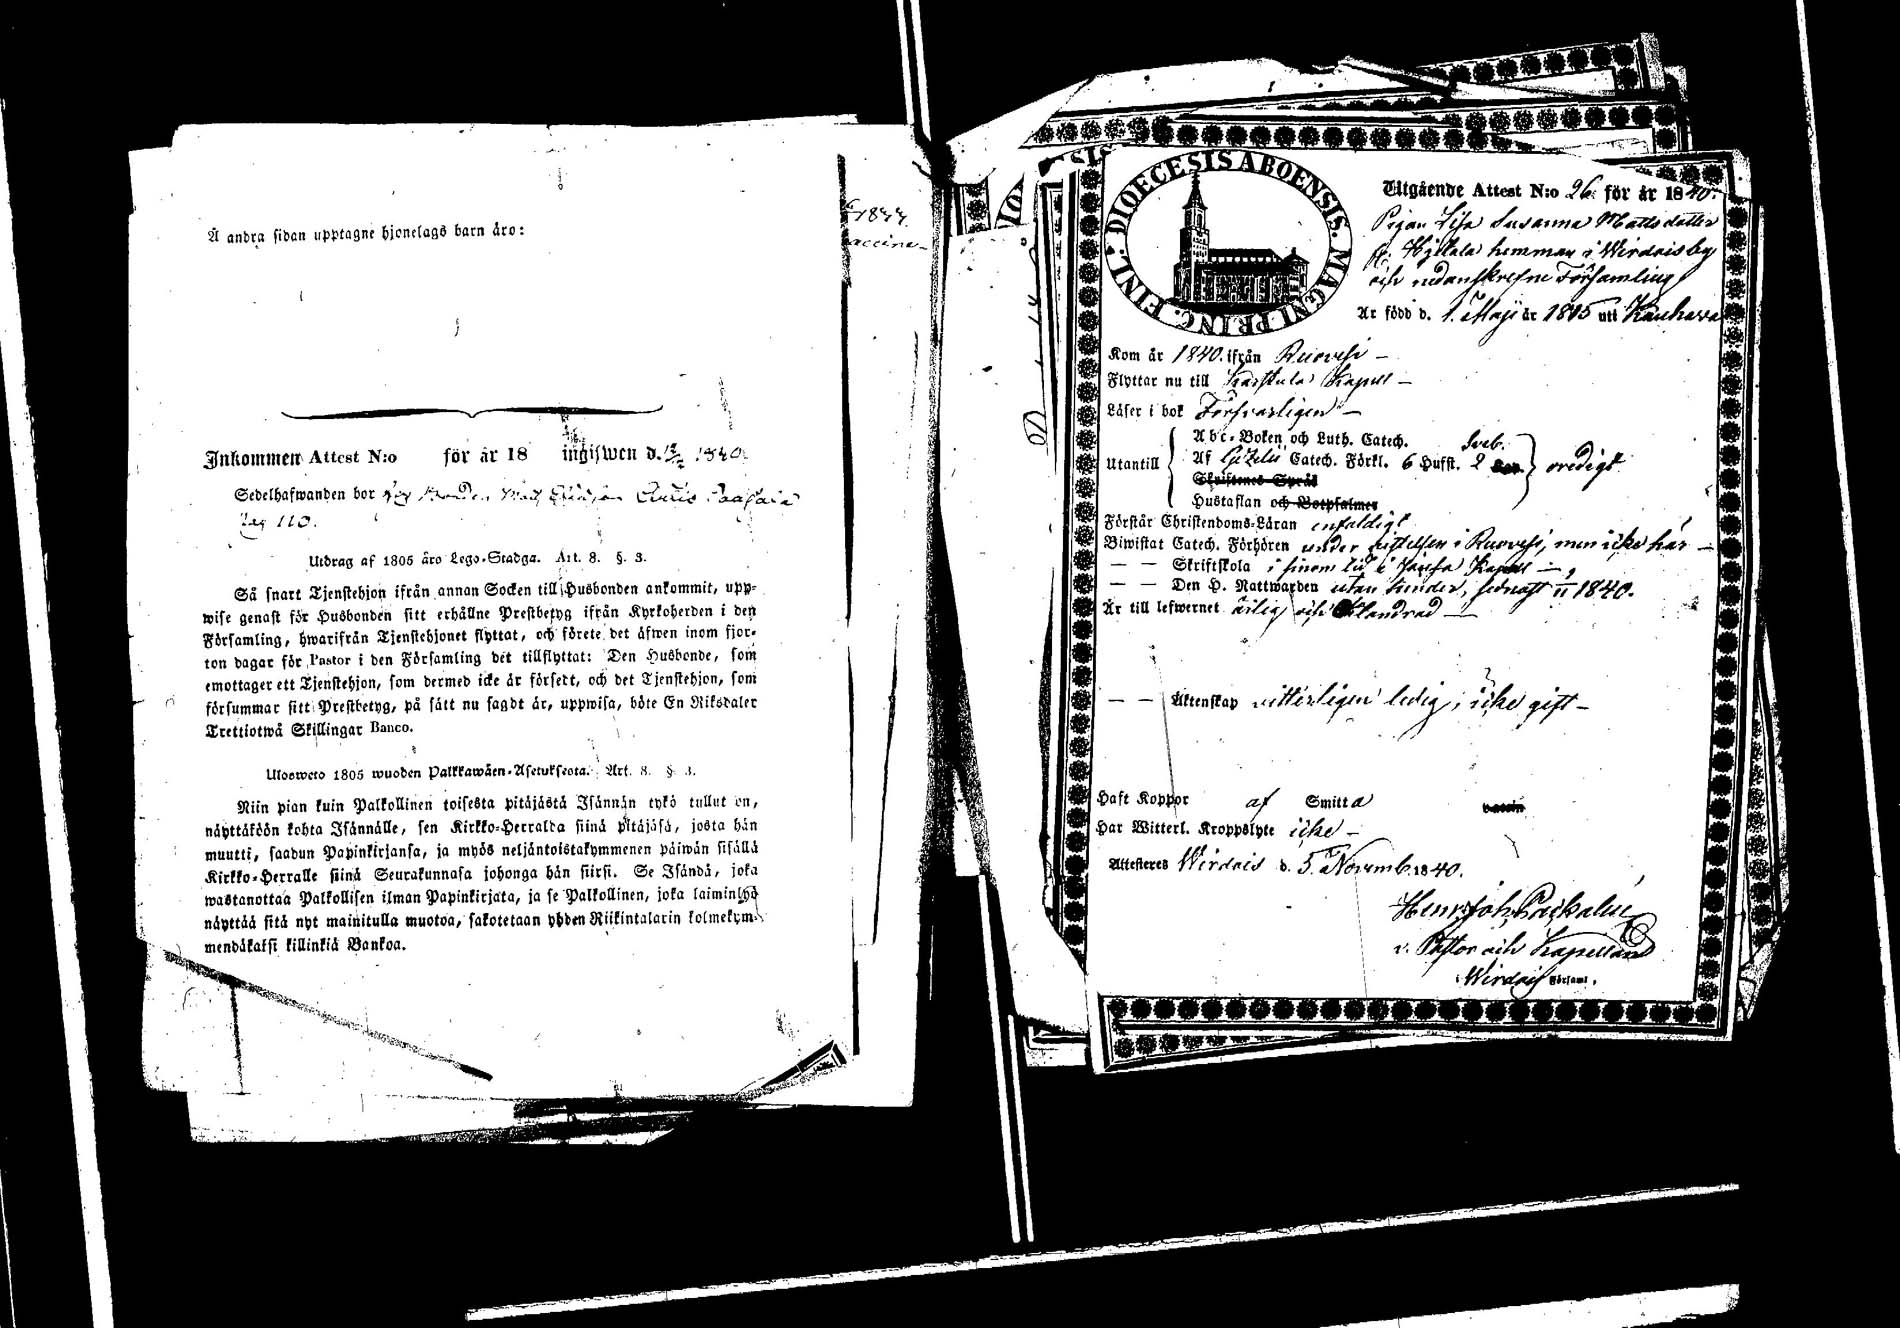 Å andra sidan upptagne hjonelags barn äro:
Inkommen Attest N:o för år 18 ingifwen d. 1840
Sedelhafwanden bor
pag 110.
Utdrag af 1805 års Lego-Stadga. Art. 8. §. 3.
Så snart Tjenstehjon ifrån annan Socken till Husbonden ankommit, upp-
wise genast för Husbonden sitt erhållne Prestbetyg ifrån Kyrkoherden i den
Församling, hwarifrån Tjenstehjonet flyttat, och förete det äfwen inom fjor-
ton dagar för Pastor i den Församling det tillflyttat: Den Husbonde, som
emottager ett Tjenstehjon, som dermed icke är försedt, och det Tjenstehjon, som
försummar sitt Prestbetyg, på sätt nu sagdt är, uppwisa, böte En Riksdaler
Trettiotwå Skillingar Banco.
Ulosweto 1805 wuoden Palkkawäen-Asetuksesta. Art. 8. §. 3.
Niin pian kuin Palkollinen toisesta pitäjästä Isännän tykö tullut on,
näyttäköön kohta Isännälle, sen Kirkko-Herralda siinä pitäjäsä, josta hän
muutti, saadun Papinkirjansa, ja myös neljäntoistakymmenen päiwän sisällä
Kirkko-Herralle siinä Seurakunnasa johonga hän siirsi. Se Isändä, joka
wastanottaa Palkollisen ilman Papinkirjata, ja se Palkollinen, joka laiminlyö
näyttää sitä nyt mainitulla muotoa, sakotetaan yhden Riikintalarin kolmekym-
mendäkaksi killinkiä Bankoa.
1844
accine
DIOECESIS ABOENSIS. MAGNI PRINC. FINL.
Utgående Attest N:o 26. för år 1840.
Pigan Lisa Susanna Mattsdotter
hemman i Wirdois by
och nedanskrefne Församling
Är född d. 1. Maji år 1815 uti Kauhava
Kom år 1840. ifrån Ruovesi –
Flyttar nu till Karstula Kapell –
Läser i bok Försvarligen –
Utantill
Abc-Boken och Luth. Catech.
Af Gezelii Catech. Förkl. 6 Hufst. 2 Sveb. oredigt
Skriftenes Språk
Hustaflan och Botpsalmer
Förstår Christendoms-Läran enfaldigt
Biwistat Catech. Förhören under vistelsen i Ruovesi, men icke här –
— — Skriftskola i sinom tid i Kapell –
— — Den H. Nattwarden utan hinder, sednast 1840.
Är till lefwernet ärlig och oklandrad —
— — Äktenskap vitterligen ledig, icke gift –
Haft Koppor af Smitta vaccin
Har Witterl. Kroppslyte icke –
Attesteres Wirdois d. 5. Novemb. 1840.
v. Pastor och Kapellan
i Wirdois Församl.